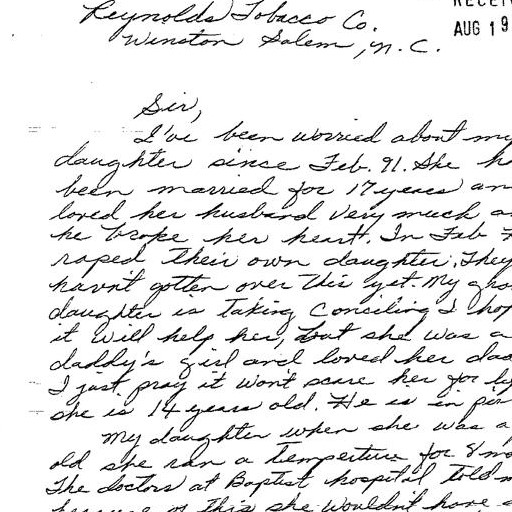 Reynolds Tobacco Co.
RECEIV
Winston Salem, N.C.
AUG 19
Sir,
I've been worried about my
daughter since Feb. 91. She ha
been married for 17 years an
loved her husband very much a
he broke her heart. In Feb
raped their own daughter. They
havn't gotten over this yet. My
daughter is taking Consiling I hop
it will help her, but she was a
daddy's girl and loved her dad
I just pray it won't scare her for
she is 14 years old. He is in
My daughter when she was a
old she ran a temperture for 8 mo
The doctors at Baptist hospital told m
because of this she wouldn't have